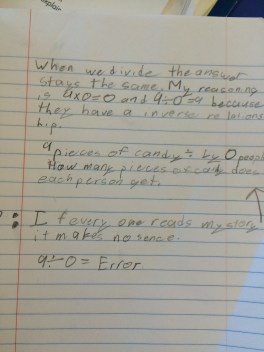 When we divide the answer
stays the same. My reasoning
is 9x0=0 and 9÷0=9 because
they have a inverse relations
hip.
9 pieces of candy ÷ by 0 people
How many pieces of cady does
each person get.
: If every one reads my story
it makes no sence.
9÷0= Error